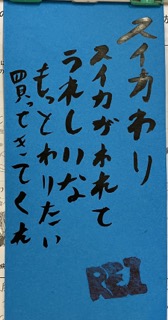 スイカわり
スイカがわれて
うれしいな
もっとわりたい
買ってきてくれ
REI